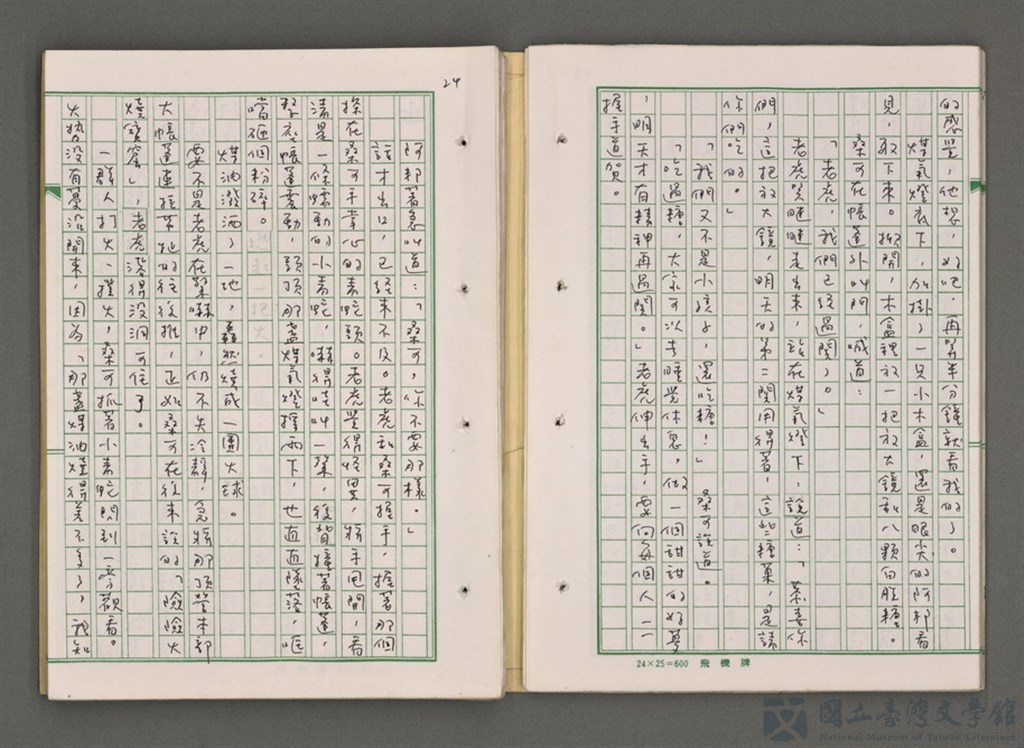 的感覺，他想，好吧，再等半分鐘就看我的了。
煤氣燈底下，加掛了一只小木盒，還是眼尖的阿邦看
見，取下來。掀開，木盒裡放一把放大鏡和八顆白脫糖。
桑可在帳蓬外叫門，喊道：
「老虎，我們已經過關了。」
老虎笑瞇瞇走出來，站在煤氣燈下，說道：「恭喜你
們，這把放大鏡，明天的第二關用得著，這些糖菓，是請
你們吃的。」
「我們又不是小孩子，還吃糖！」桑可說道。
「吃過糖，大家可以去睡覺休息，做一個甜甜的好夢
，明天才有精神再過關。」老虎伸出手，要向每個人一一
握手道賀。
24×25=600 飛機牌
24
阿邦著急叫道：「桑可，你不要那樣。」
話才出口，已經來不及。老虎和桑可握手，握著那個
探在桑可手掌心的青蛇頭。老虎覺得怪異，將手甩開，看
清是一條蠕動的小青蛇，嚇得哇叫一聲，後背撞著帳蓬，
整座帳蓬震動，頭頂那盞煤氣燈搖兩下，也直直墜落，哐
噹砸個粉碎。
煤油潑洒了一地，轟然燒成一團火球。
要不是老虎在緊嚇中，仍不失冷靜，急將那頂營本部
大帳蓬連拉帶扯的往後推，正如桑可在後來說的「險險火
燒寶窟」，老虎燙得沒洞可住了。
一群人打火、撲火，桑可抓著小青蛇閃到一旁觀看。
火勢沒有蔓沿開來，因為「那盞煤油燈得差不多了，我知
國立臺灣文學館
National Museum of Taiwan Literature